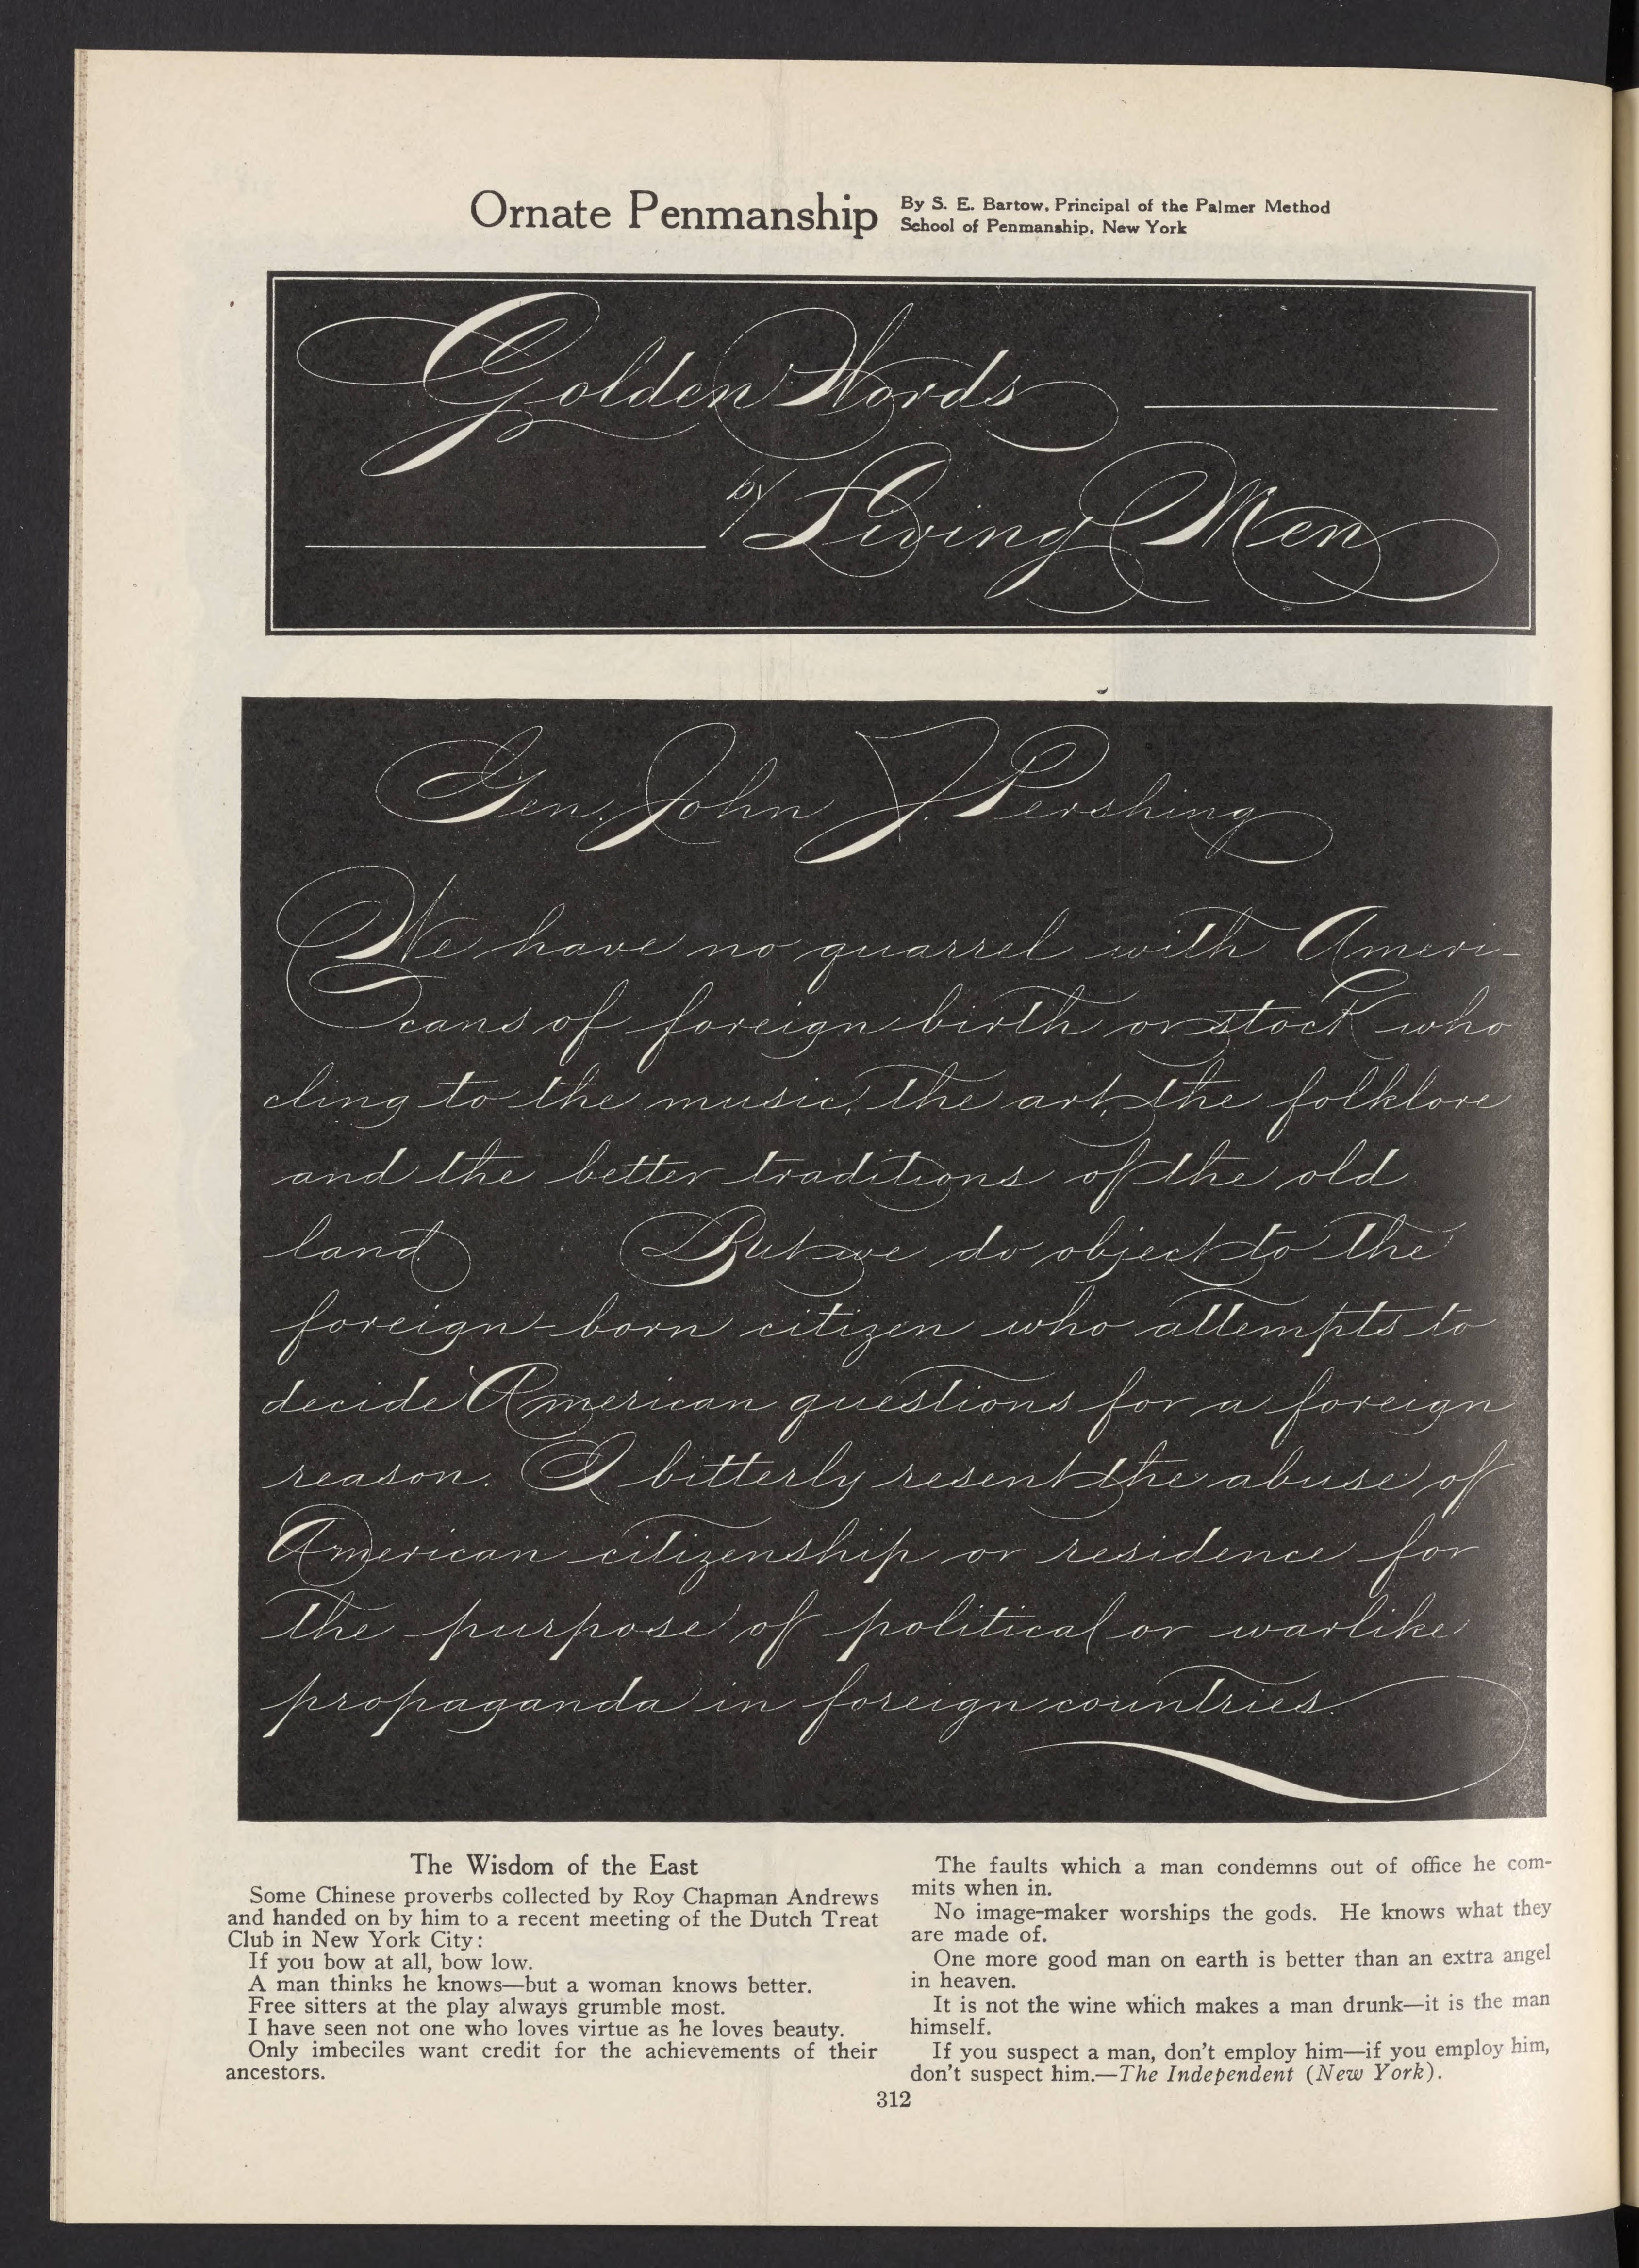 Ornate Penmanship
By S. E. Bartow, Principal of the Palmer Method
School of Penmanship, New York
Golden Words
by Living Men
Gen. John J. Pershing
We have no quarrel with Ameri-
cans of foreign birth or stock who
cling to the music, the art, the folklore
and the better traditions of the old
land. But we do object to the
foreign-born citizen who attempts to
decide American questions for a foreign
reason. I bitterly resent the abuse of
American citizenship or residence for
the purpose of political or warlike
propaganda in foreign countries.
The Wisdom of the East
Some Chinese proverbs collected by Roy Chapman Andrews
and handed on by him to a recent meeting of the Dutch Treat
Club in New York City:
If you bow at all, bow low.
A man thinks he knows—but a woman knows better.
Free sitters at the play always grumble most.
I have seen not one who loves virtue as he loves beauty.
Only imbeciles want credit for the achievements of their
ancestors.
The faults which a man condemns out of office he com-
mits when in.
No image-maker worships the gods. He knows what they
are made of.
One more good man on earth is better than an extra angel
in heaven.
It is not the wine which makes a man drunk—it is the man
himself.
If you suspect a man, don't employ him—if you employ him,
don't suspect him.—The Independent (New York).
312